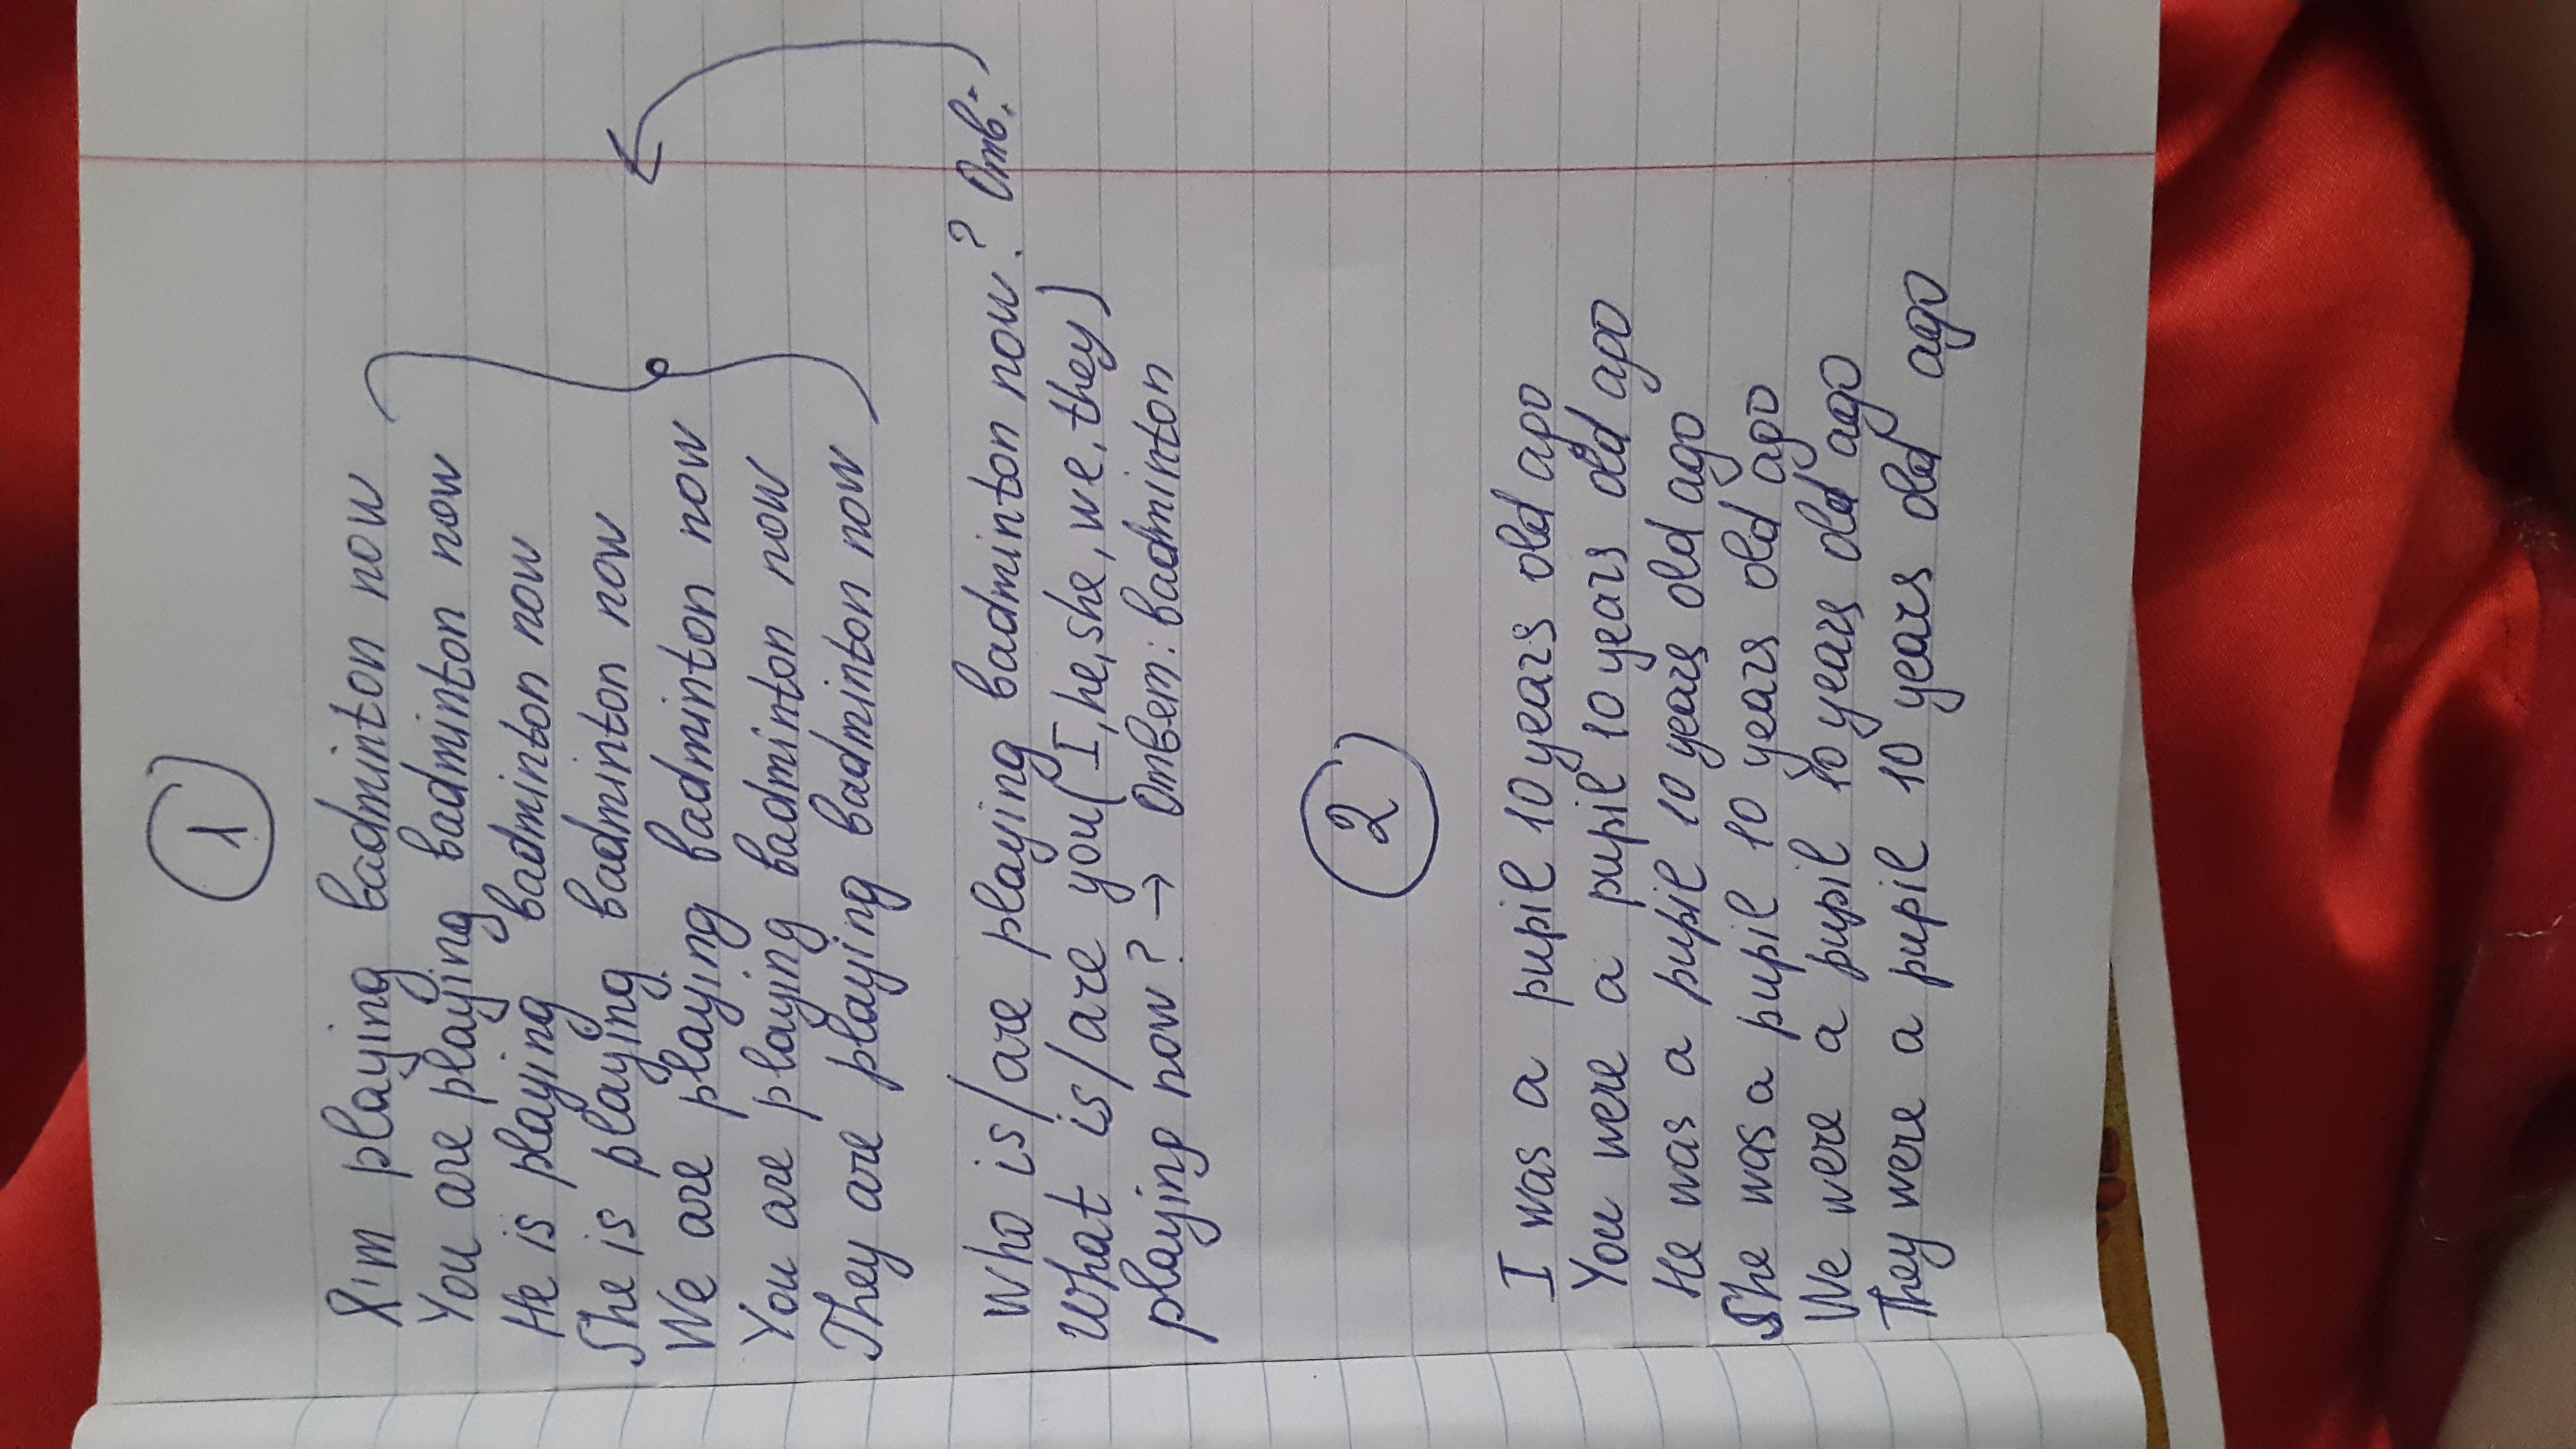 1
I'm playing badminton now
You are playing badminton now
He is playing badminton now
She is playing badminton now
We are playing badminton now
You are playing badminton now
They are playing badminton now
Who is/are playing badminton now? Отв.:
What is/are you (I, he, she, we, they)
playing now? → Ответ: badminton
2
I was a pupil 10 years old ago
You were a pupil 10 years old ago
He was a pupil 10 years old ago
She was a pupil 10 years old ago
We were a pupil 10 years old ago
They were a pupil 10 years old ago